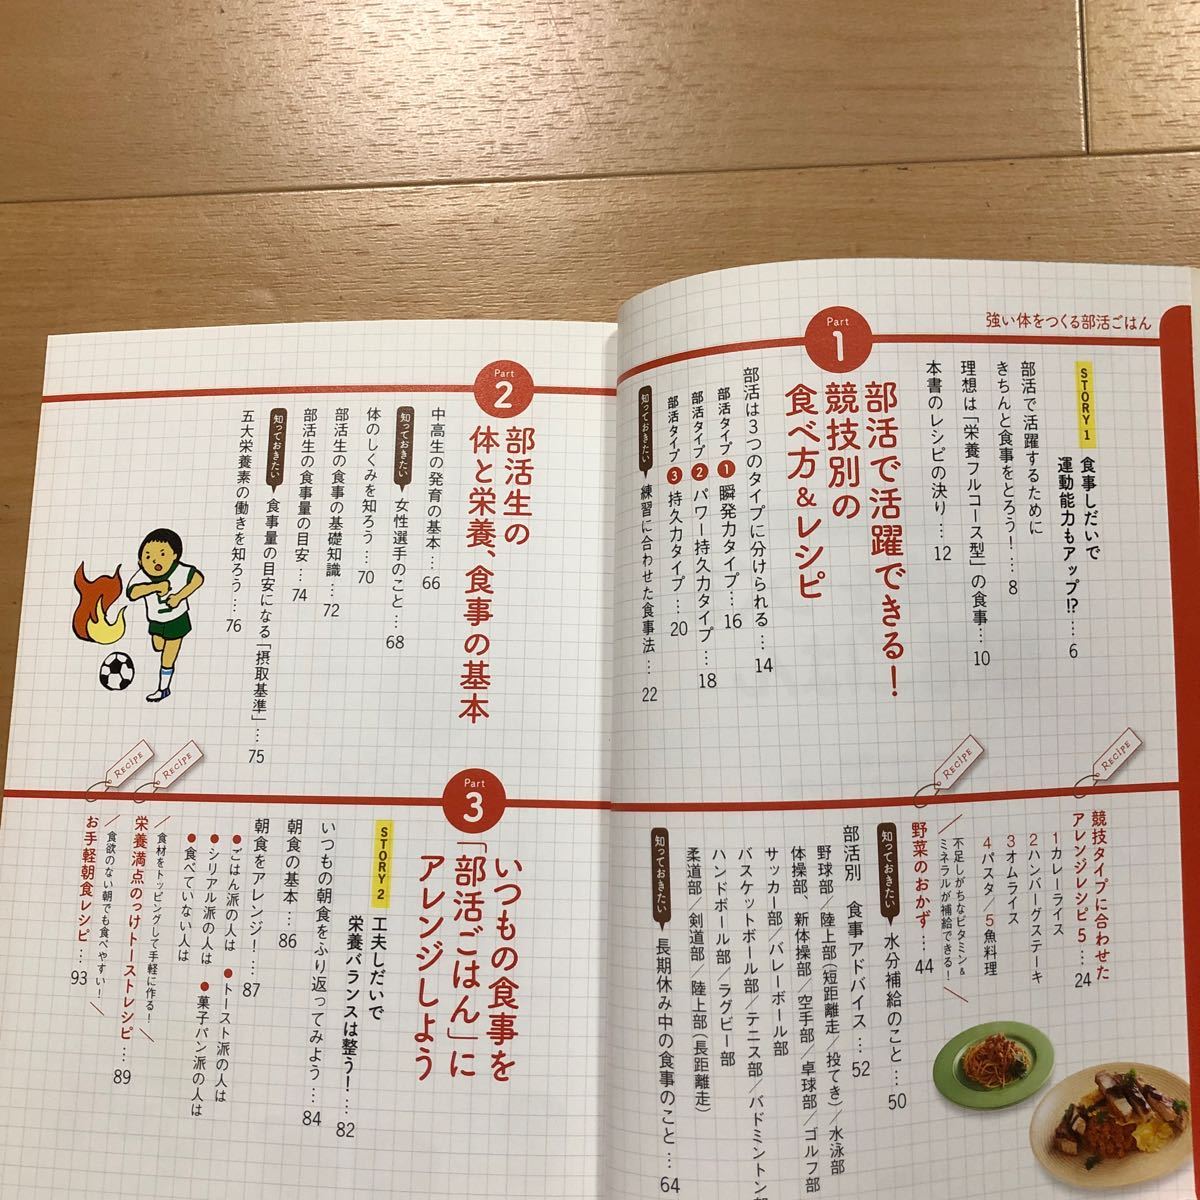 強い体をつくる部活ごはん
Part
1
部活で活躍できる!
競技別の
食べ方&レシピ
STORY 1
食事しだいで
運動能力もアップ!?…6
部活で活躍するために
きちんと食事をとろう!…8
理想は「栄養フルコース型」の食事…10
本書のレシピの決り…12
部活は3つのタイプに分けられる…14
部活タイプ 1 瞬発力タイプ…16
部活タイプ 2 パワー持久力タイプ…18
部活タイプ 3 持久力タイプ…20
知っておきたい 練習に合わせた食事法…22
RECIPE
競技タイプに合わせた
アレンジレシピ5…24
1カレーライス
2ハンバーグステーキ
3オムライス
4パスタ/5魚料理
RECIPE
不足しがちなビタミン&
ミネラルが補給できる!
野菜のおかず…44
知っておきたい 水分補給のこと…50
部活別 食事アドバイス…52
野球部/陸上部(短距離走/投てき)/水泳部
体操部、新体操部/空手部/卓球部/ゴルフ部
サッカー部/バレーボール部
バスケットボール部/テニス部/バドミントン部
ハンドボール部/ラグビー部
柔道部/剣道部/陸上部(長距離走)
知っておきたい 長期休み中の食事のこと…64
Part
2
部活生の
体と栄養、食事の基本
中高生の発育の基本…66
知っておきたい 女性選手のこと…68
体のしくみを知ろう…70
部活生の食事の基礎知識…72
部活生の食事量の目安…74
知っておきたい 食事量の目安になる「摂取基準」…75
五大栄養素の働きを知ろう…76
Part
3
いつもの食事を
「部活ごはん」に
アレンジしよう
STORY 2
工夫しだいで
栄養バランスは整う!…82
いつもの朝食をふり返ってみよう…84
朝食の基本…86
朝食をアレンジ!…87
●ごはん派の人は ●トースト派の人は
●シリアル派の人は ●菓子パン派の人は
●食べていない人は
RECIPE
食材をトッピングして手軽に作る!
栄養満点のっけトーストレシピ…89
RECIPE
食欲のない朝でも食べやすい!
お手軽朝食レシピ…93